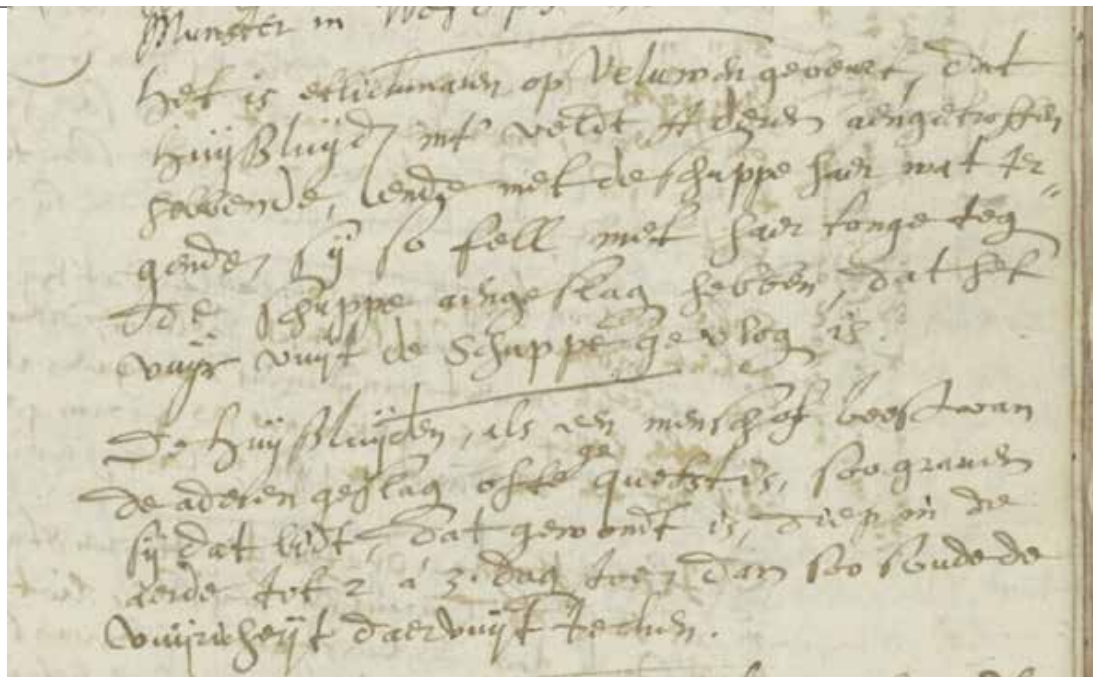 Munster in
Het is etlickmaelen op Veluwen gebeurt, dat
Huijsluijd int veldt Aderen aengetroffen
hebbende, ende met de schuppe haer wat ter¬
gende, sij so fell met haer tonge teg
de schuppe aengeslag hebben, dat het
vuijr vuijt de schuppe gevlog is.
De Huijsluijden, als een mensch of beest van
de aderen geslag ofte gequetst is, soo graven
sij dat lidt, dat gewondt is, diep in de
aerde tot 2 à 3 dag toe, dan soo soude de
vuijricheijt daervuijt trecken.